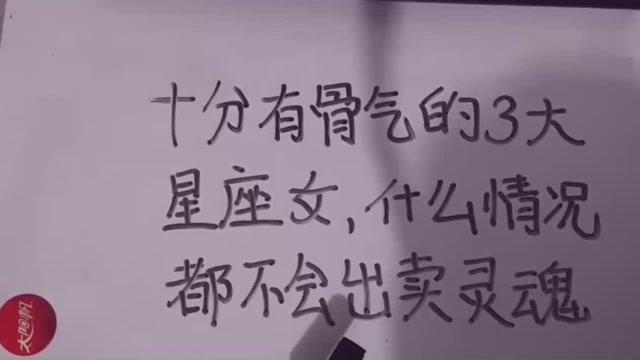 十分有骨气的3大
星座女,什么情况
都不会出卖灵魂